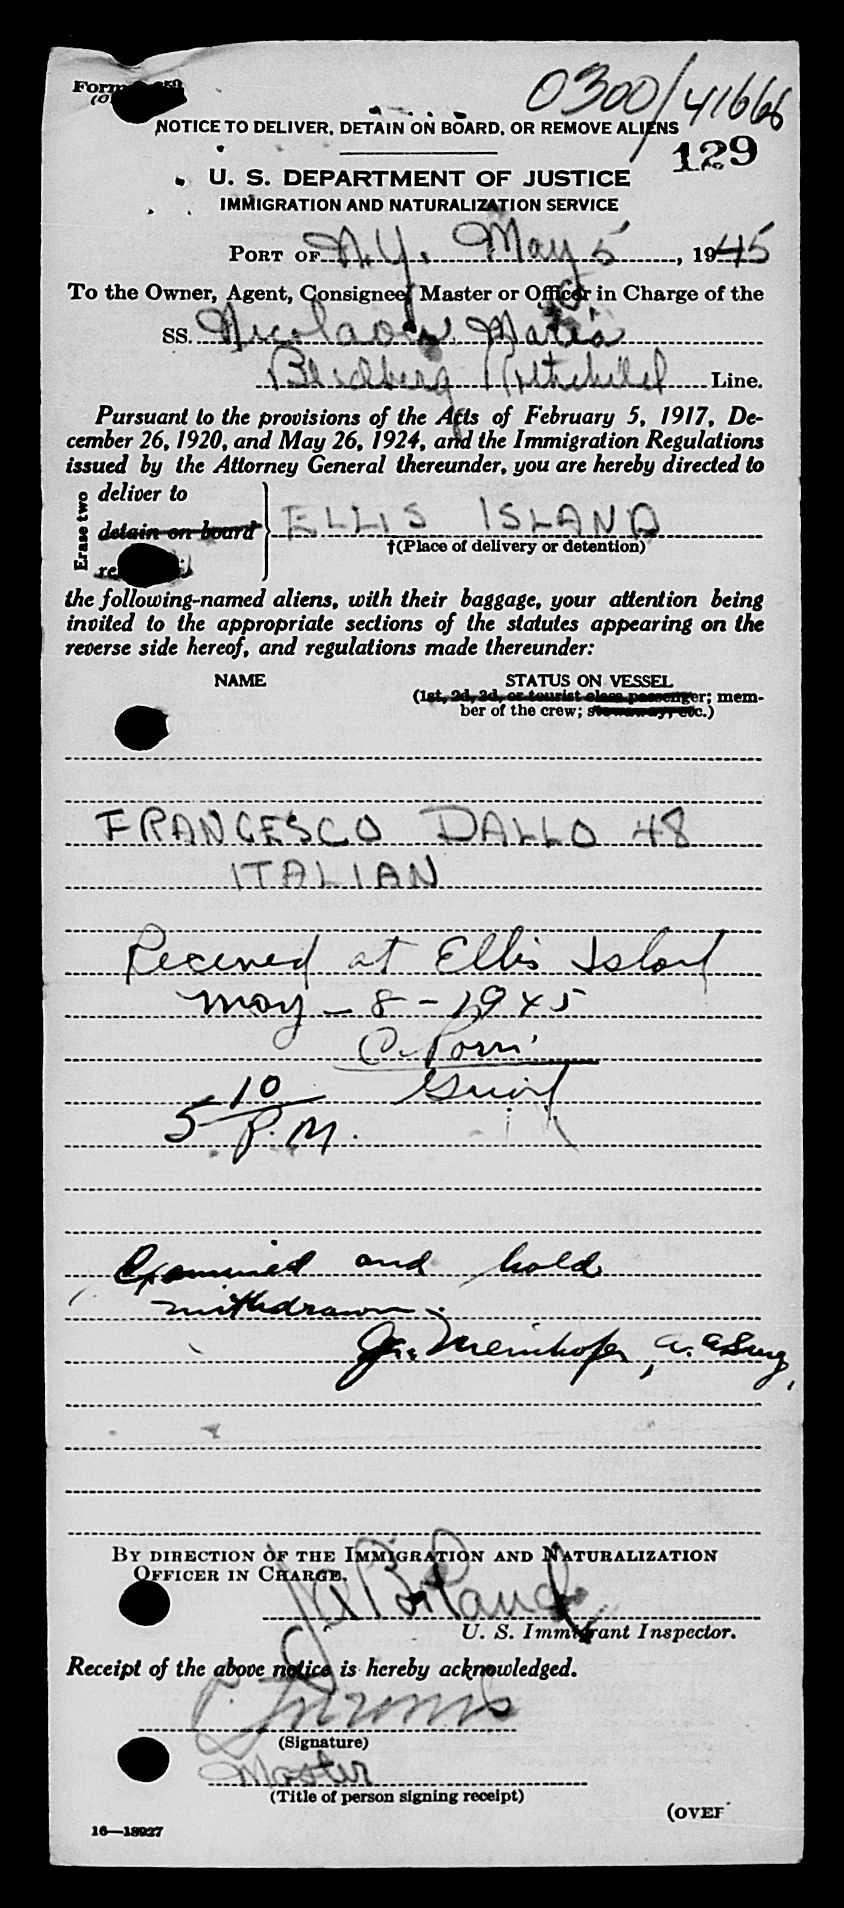 Form
0300/41666
NOTICE TO DELIVER, DETAIN ON BOARD, OR REMOVE ALIENS
129
U. S. DEPARTMENT OF JUSTICE
IMMIGRATION AND NATURALIZATION SERVICE
PORT OF N.Y. May 5, 1945
To the Owner, Agent, Consignee, Master or Officer in Charge of the
SS. Nicolaou Maria
Line.
Pursuant to the provisions of the Acts of February 5, 1917, De-
cember 26, 1920, and May 26, 1924, and the Immigration Regulations
issued by the Attorney General thereunder, you are hereby directed to
Erase two
deliver to
detain on board
ELLIS ISLAND
†(Place of delivery or detention)
the following-named aliens, with their baggage, your attention being
invited to the appropriate sections of the statutes appearing on the
reverse side hereof, and regulations made thereunder:
NAME STATUS ON VESSEL
(1st, 2d, 3d, or tourist class passenger; mem-
ber of the crew; stowaway, etc.)
FRANCESCO DALLO 48
ITALIAN
Received at Ellis Island
May - 8 - 1945
Guard
5 10 P.M.
Examined and hold
withdrawn.
BY DIRECTION OF THE IMMIGRATION AND NATURALIZATION
OFFICER IN CHARGE.
U. S. Immigrant Inspector.
Receipt of the above notice is hereby acknowledged.
(Signature)
Master
(Title of person signing receipt)
(OVER
16—18927